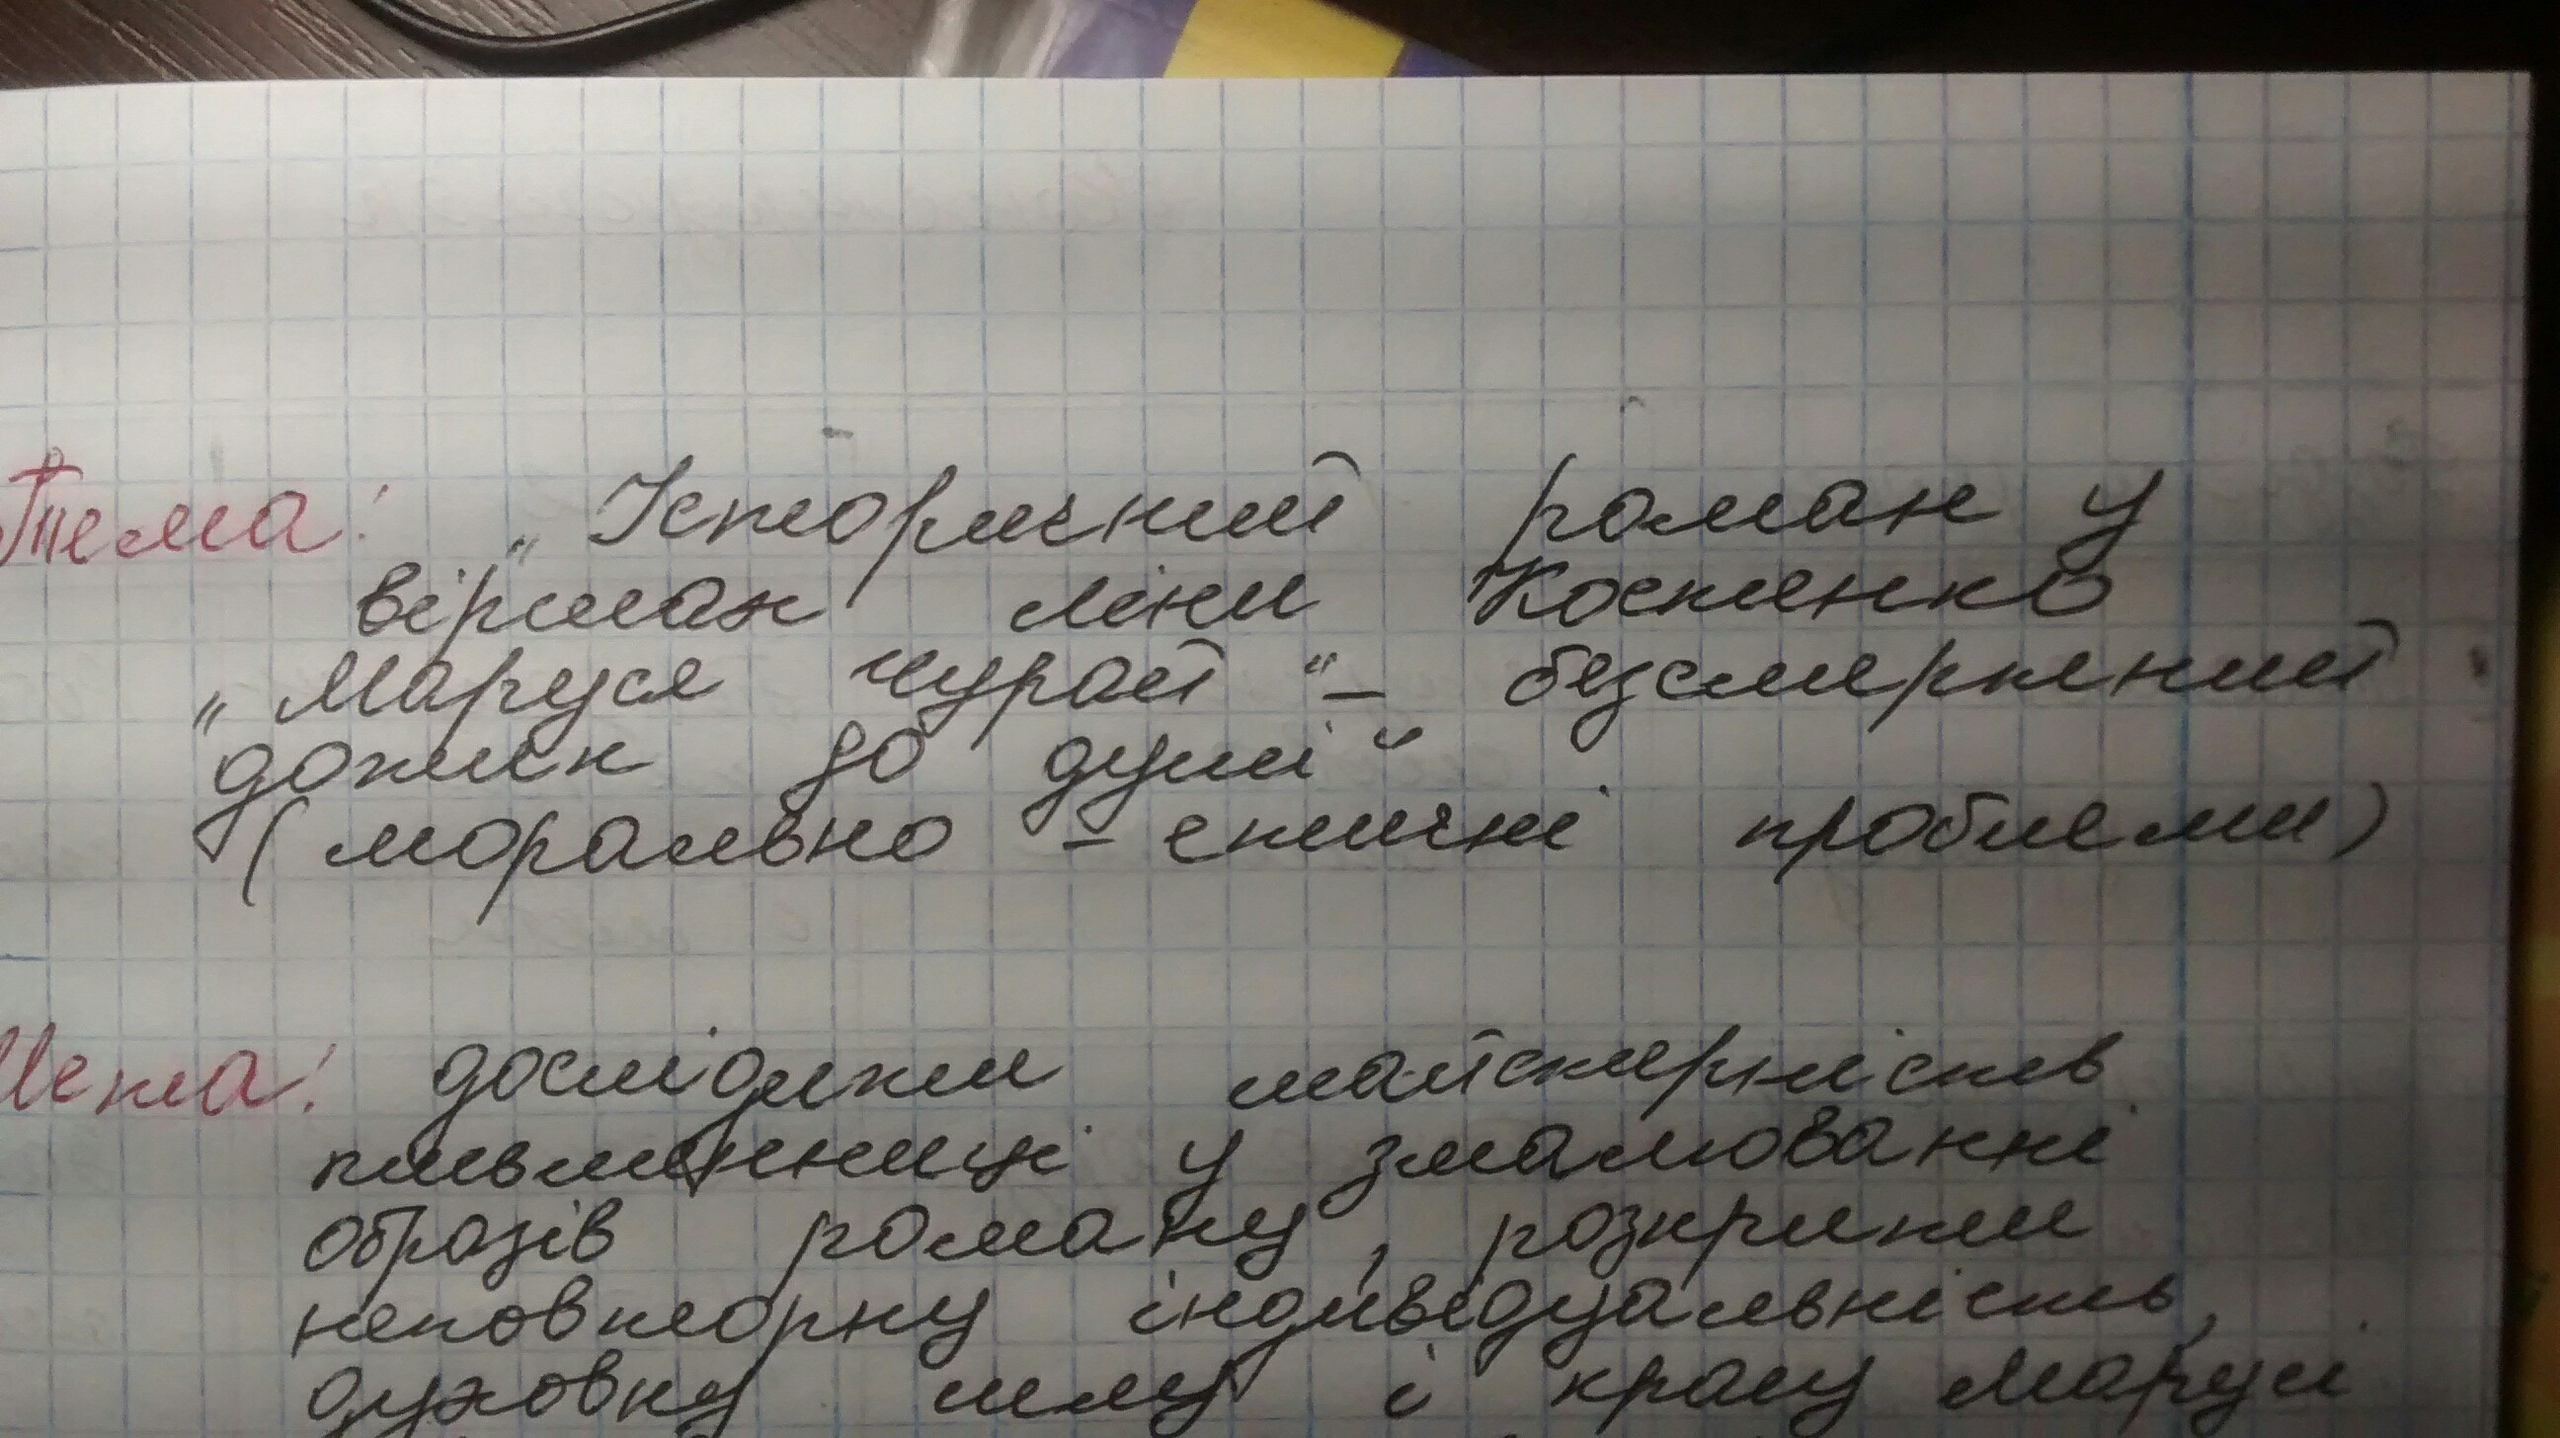 Тема: „Історичний роман у
віршах Ліни Костенко
„Маруся Чурай“ – безсмертний
дотик до душі“
(морально - етичні проблеми)
Мета: дослідити майстерність
письменниці у змалюванні
образів роману, розкрити
неповторну індивідуальність,
духовну силу і красу Марусі